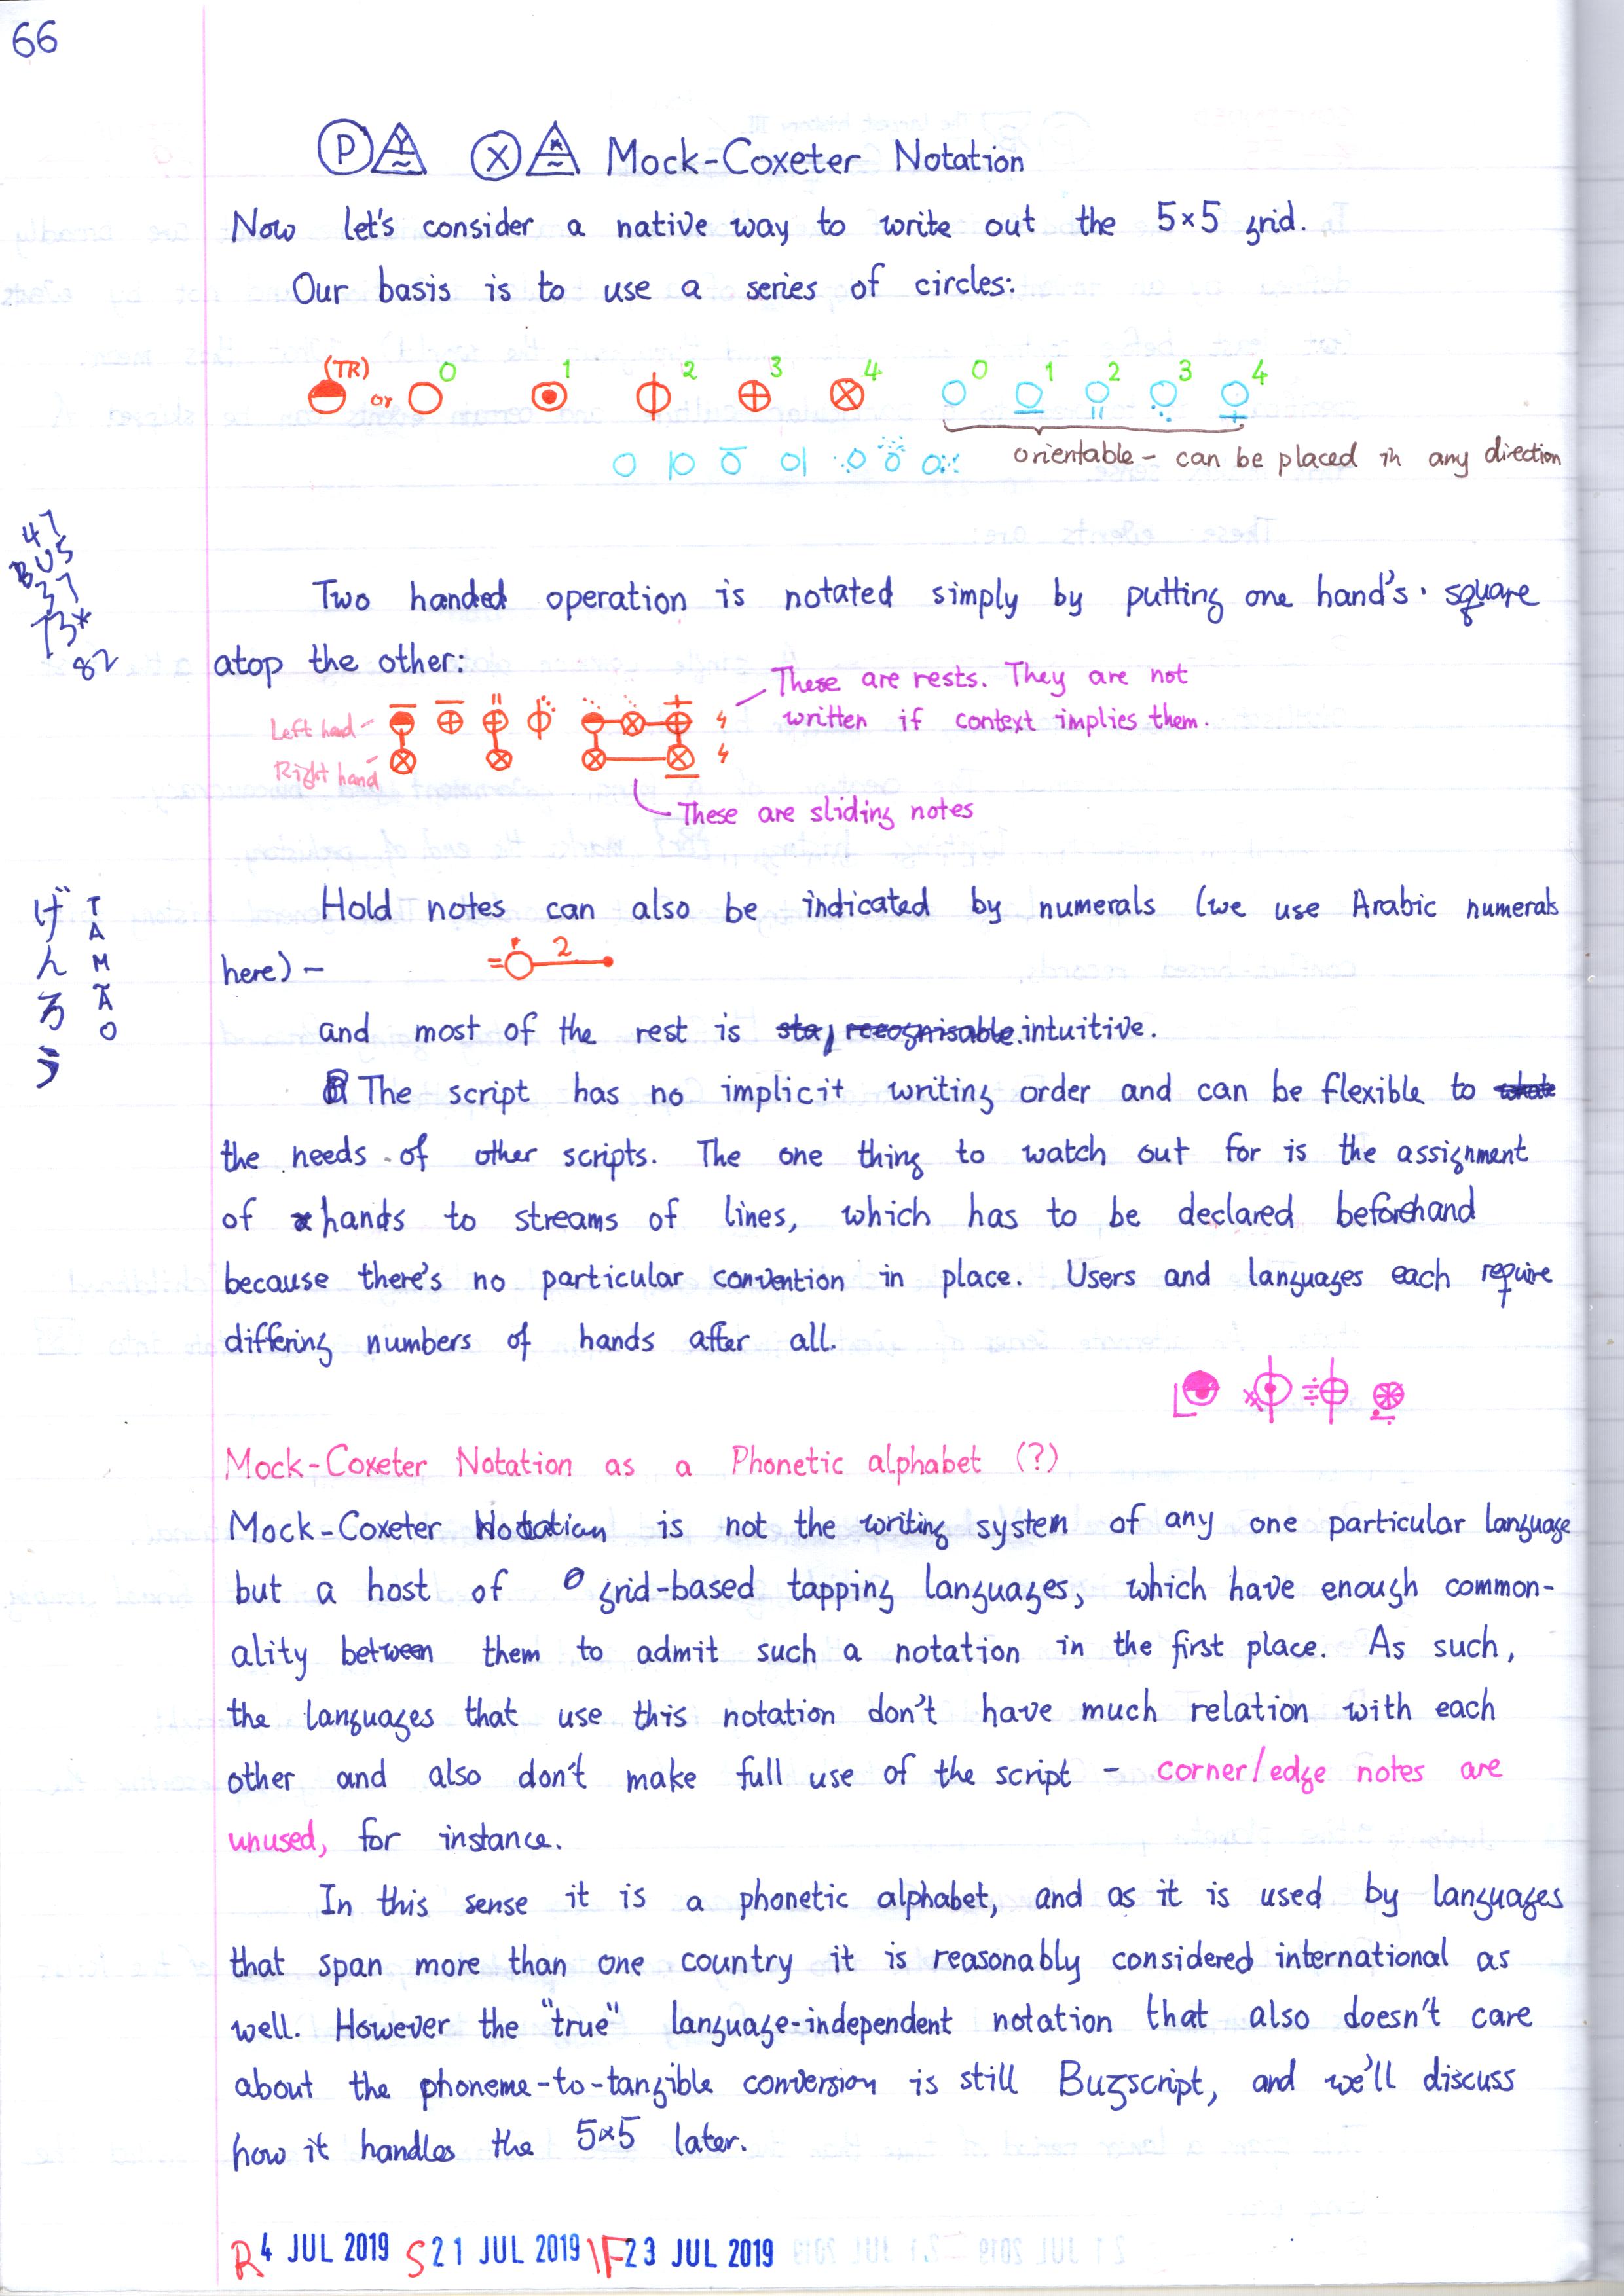 66
P X Mock-Coxeter Notation
Now let's consider a native way to write out the 5×5 grid.
Our basis is to use a series of circles:
(TR) or 0 1 2 3 4 0 1 2 3 4
orientable - can be placed in any direction
47
BUS
37
73*
82
Two handed operation is notated simply by putting one hand's square
atop the other:
These are rests. They are not
written if context implies them.
Left hand
Right hand
These are sliding notes
げんろう
TAMÃO
Hold notes can also be indicated by numerals (we use Arabic numerals
here) - 2
and most of the rest is sta, recognisable. intuitive.
The script has no implicit writing order and can be flexible to
the needs of other scripts. The one thing to watch out for is the assignment
of hands to streams of lines, which has to be declared beforehand
because there's no particular convention in place. Users and languages each require
differing numbers of hands after all.
Mock-Coxeter Notation as a Phonetic alphabet (?)
Mock-Coxeter Notation is not the writing system of any one particular language
but a host of grid-based tapping languages, which have enough common-
ality between them to admit such a notation in the first place. As such,
the languages that use this notation don't have much relation with each
other and also don't make full use of the script - corner/edge notes are
unused, for instance.
In this sense it is a phonetic alphabet, and as it is used by languages
that span more than one country it is reasonably considered international as
well. However the "true" language-independent notation that also doesn't care
about the phoneme-to-tangible conversion is still Buzscript, and we'll discuss
how it handles the 5×5 later.
R 4 JUL 2019 S 21 JUL 2019 \F 23 JUL 2019